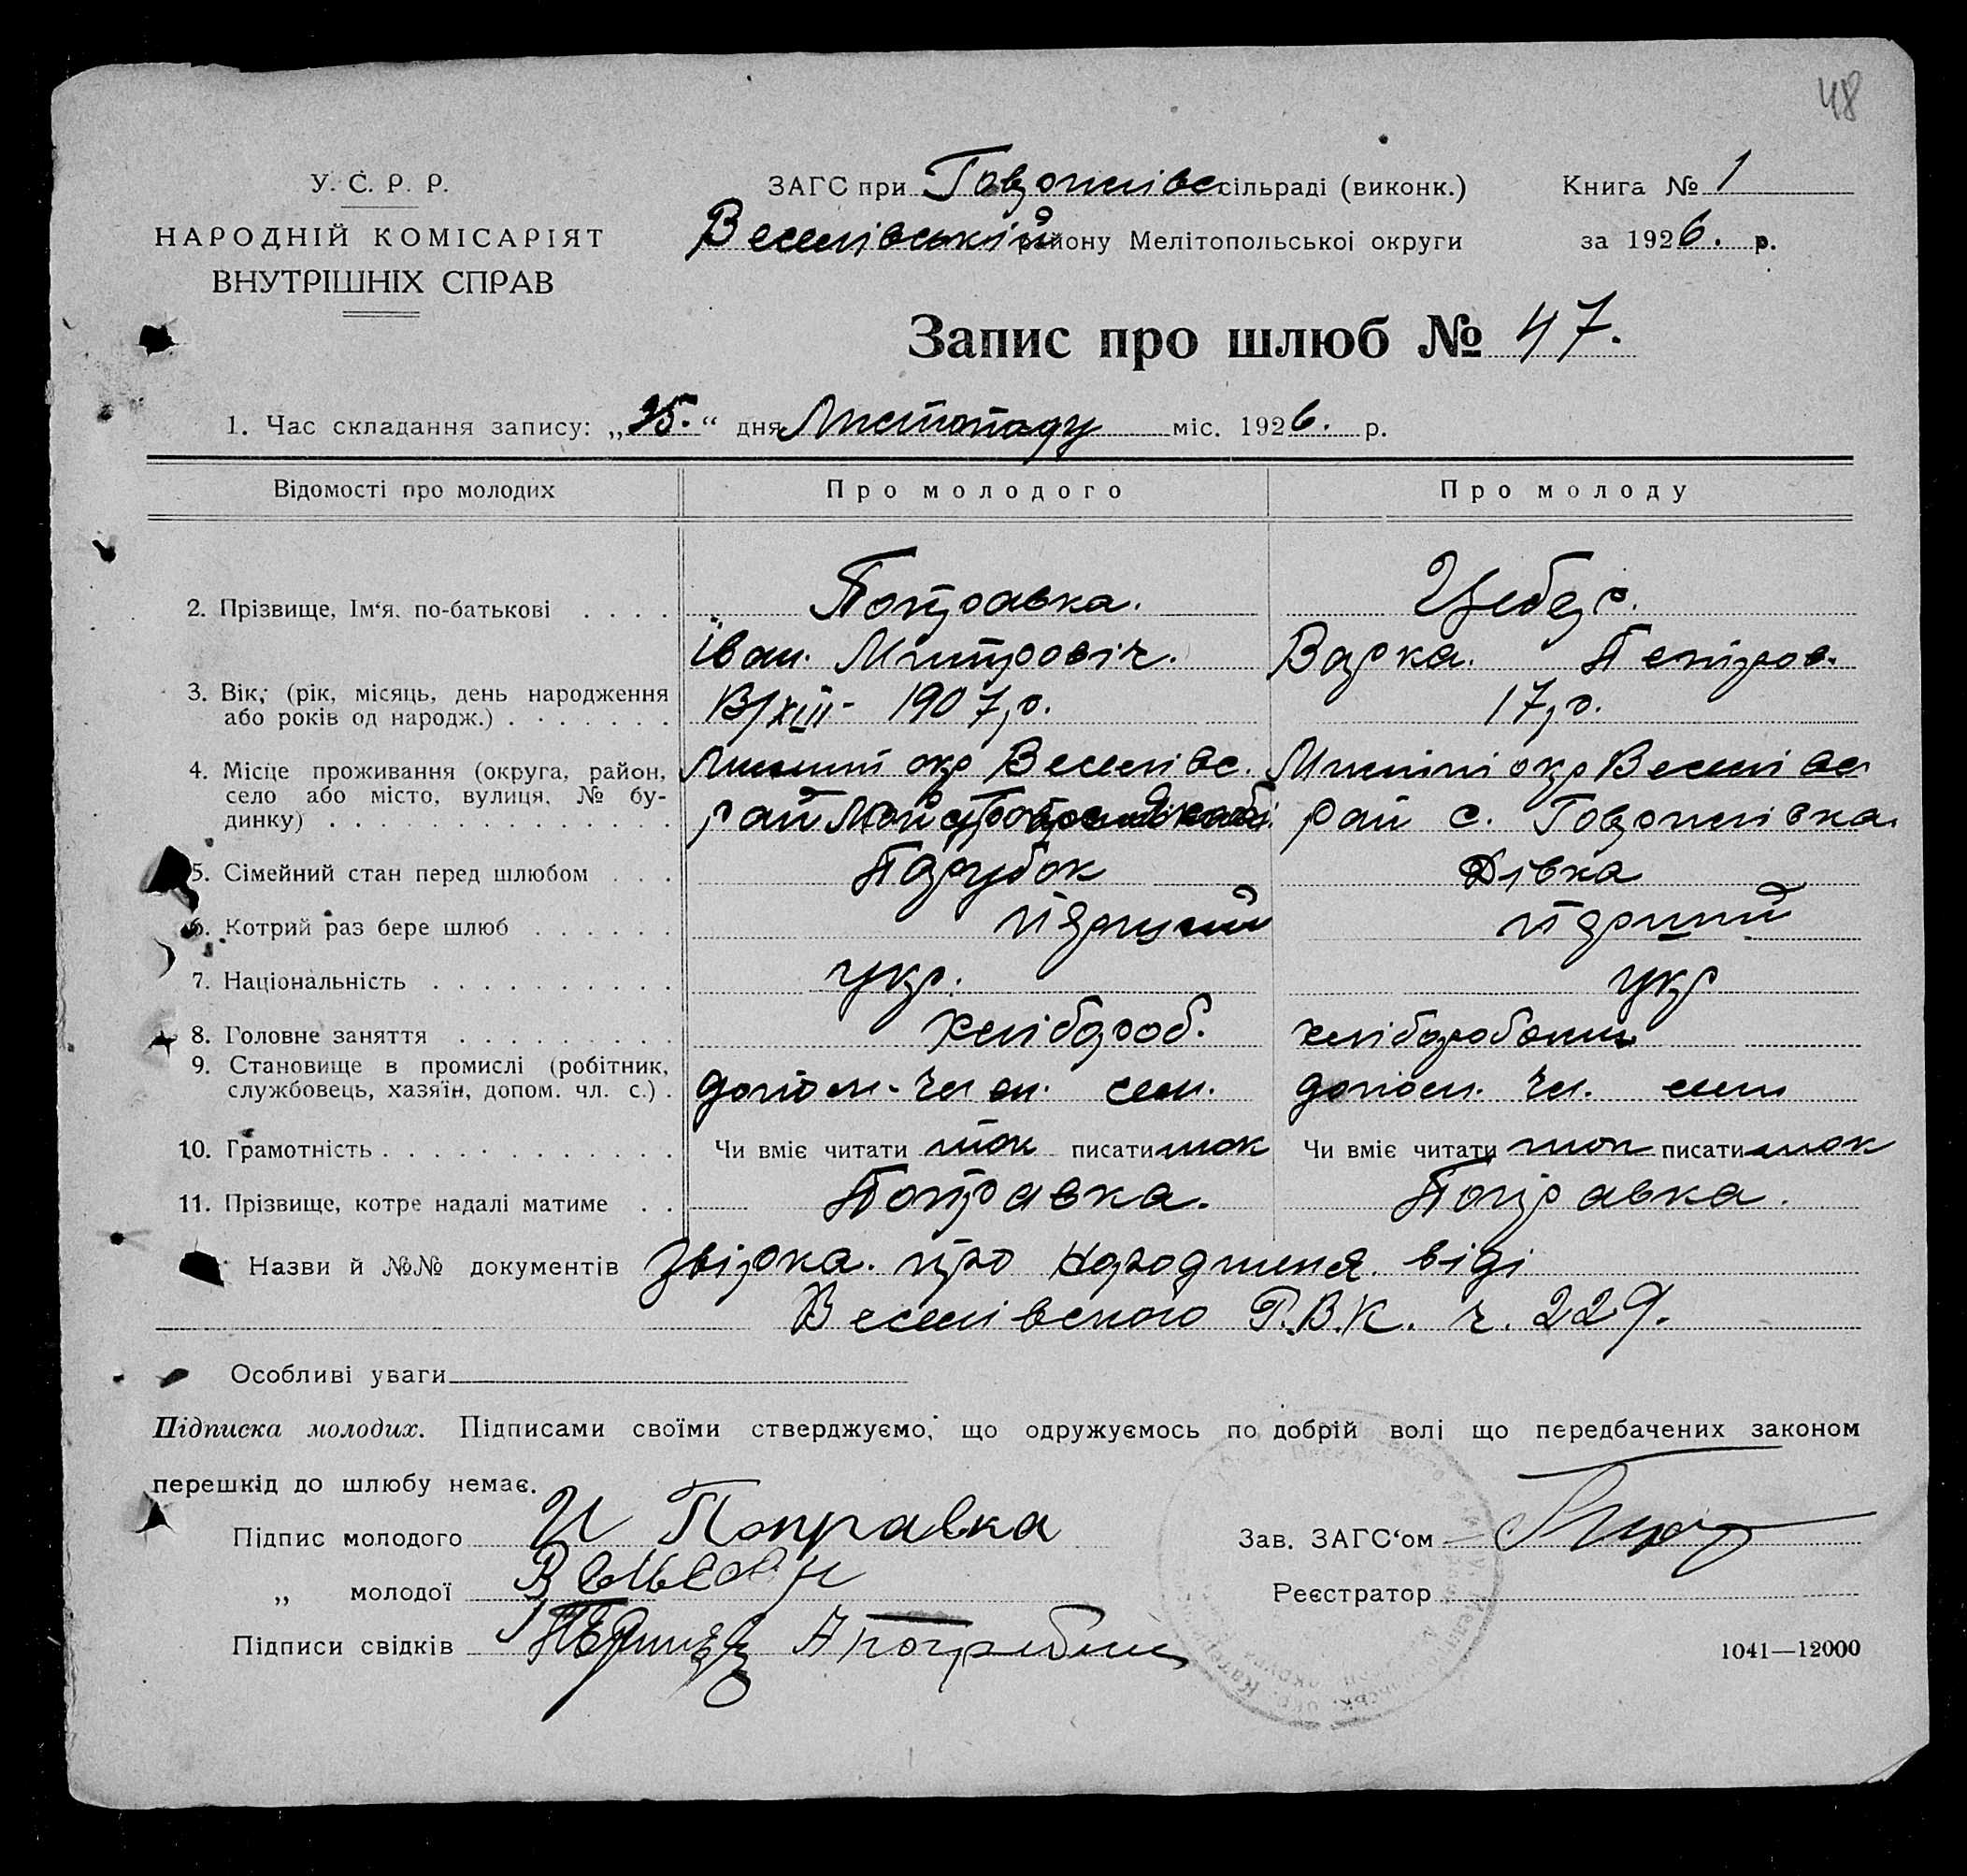 48
У. С. Р. Р.
НАРОДНІЙ КОМІСАРІЯТ
ВНУТРІШНІХ СПРАВ
ЗАГС при сільраді (виконк.)
Веселівській району Мелітопольської округи
Книга № 1
за 1926. р.
Запис про шлюб № 47.
1. Час складання запису: „25.“ дня Листопаду міс. 1926. р.
Відомості про молодих Про молодого Про молоду
2. Прізвище, Ім'я, по-батькові . . . . Поправка.
Іван. Митровіч. Варка. Петров.
3. Вік, (рік, місяць, день народження
або років од народж.) . . . . . . . 1907 р. 17 р.
4. Місце проживання (округа, район, окр Веселівс. окр Веселівс
село або місто, вулиця, № бу- рай рай с.
динку) . . . . . . . . . . . . . .
5. Сімейний стан перед шлюбом . . . Парубок Дівка
6. Котрий раз бере шлюб . . . . . . перший
7. Національність . . . . . . . . . . укр. укр
8. Головне заняття . . . . . . . . . хлібороб.
9. Становище в промислі (робітник,
службовець, хазяїн, допом. чл. с.) . допом. член. сем. допом. чл. сем
10. Грамотність . . . . . . . . . . . . Чи вміє читати так писати так Чи вміє читати так писати так
11. Прізвище, котре надалі матиме . . Поправка. Поправка.
Назви й №№ документів про від
Веселівского Р.В.К. ч. 229.
Особливі уваги
Підписка молодих. Підписами своїми стверджуємо, що одружуємось по добрій волі що передбачених законом
перешкід до шлюбу немає.
Підпис молодого И Поправка
Зав. ЗАГС'ом
„ молодої
Реєстратор
Підписи свідків
1041—12000